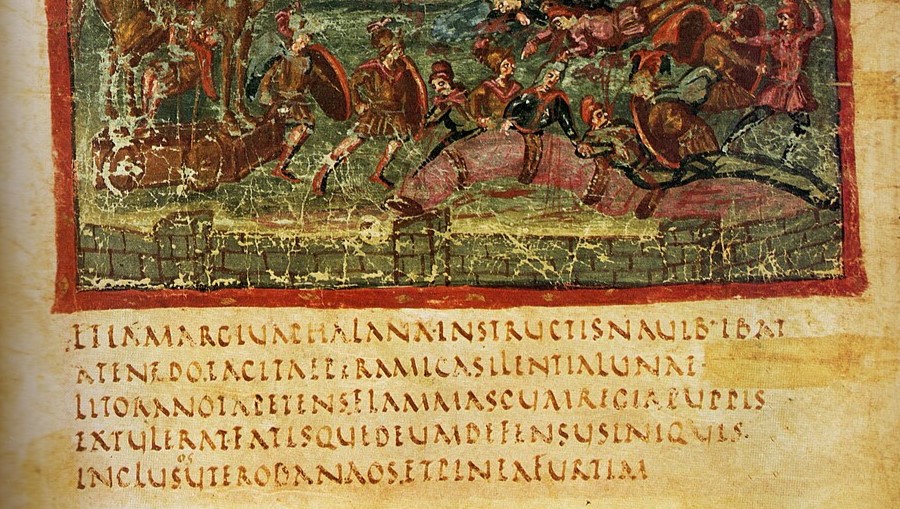 ETIAMARGIUAPHALANXINSTRUCTISNAUIB·IBAT
ATENEDO·TACITAEPERAMICASILENTIALUNAE
LITORANOTAPETENS·FLAMMASCUMREGIAPUPPIS
EXTULERATFATISQUEDEUMDEFENSUSINIQUIS·
INCLUSOSUTERODANAOS·ETPINEAFURTIM